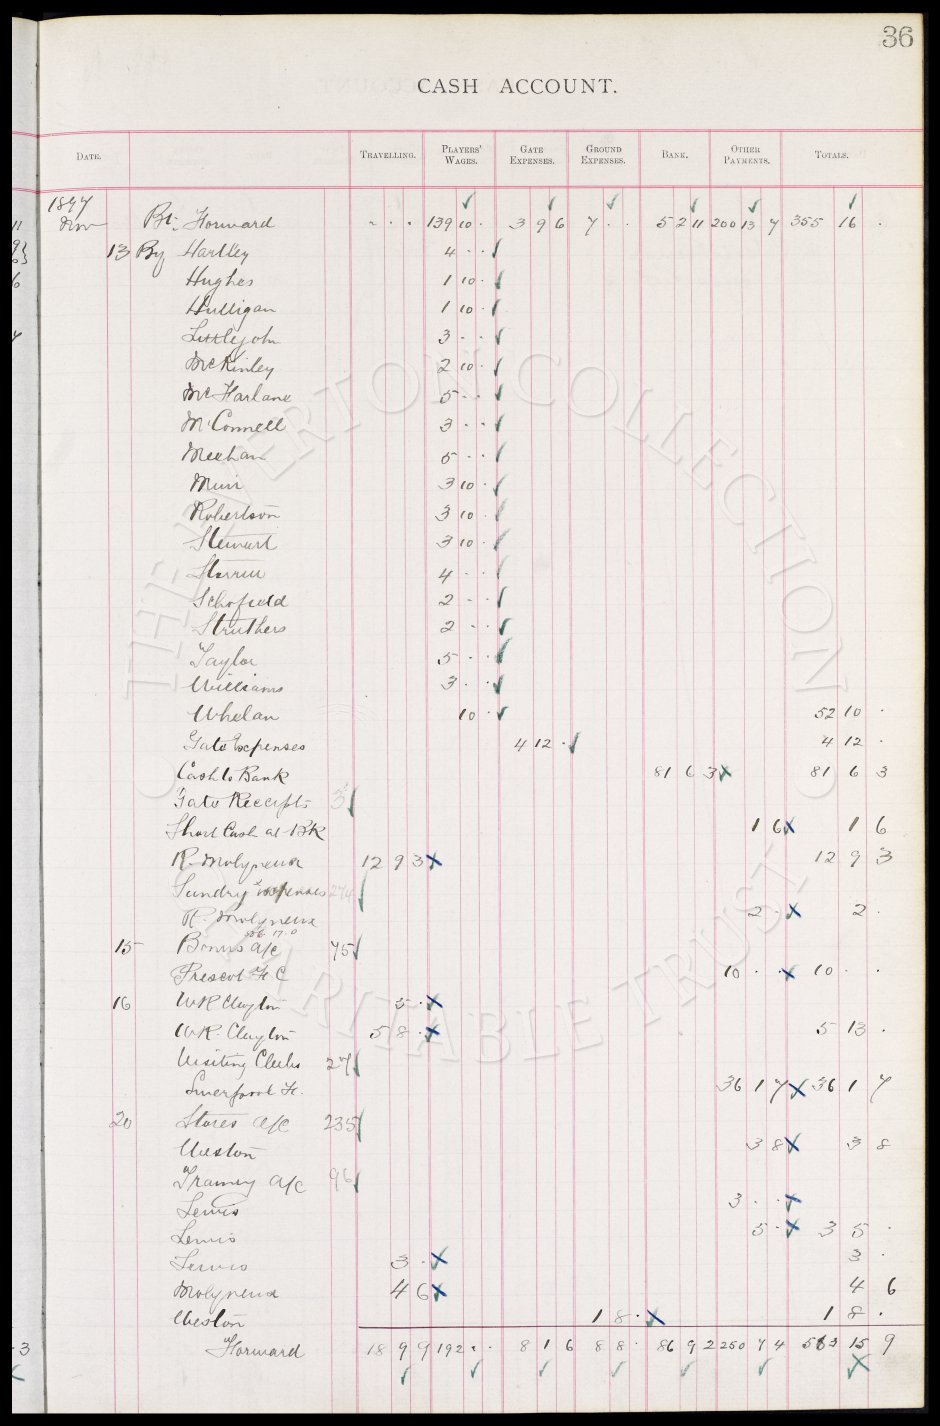 36
CASH ACCOUNT.
DATE. TRAVELLING. PLAYERS' WAGES. GATE EXPENSES. GROUND EXPENSES. BANK. OTHER PAYMENTS. TOTALS.
1897
Nov Bt. Forward - . . 139 10 . 3 9 6 7 . . 5 2 11 200 13 7 355 16 .
13 By Hartley 4 . .
Hughes 1 10 .
Hulligan 1 10 .
Littlejohn 3 . .
McKinley 2 10 .
McFarlane 5 . .
McConnell 3 . .
Meehan 5 . .
Muir 3 10 .
Robertson 3 10 .
Stewart 3 10 .
Storrier 4 . .
Schofield 2 . .
Struthers 2 . .
Taylor 5 . .
Williams 3 . .
Whelan 10 . 52 10 .
Gate Expenses 4 12 . 4 12 .
Cash to Bank 81 6 3 81 6 3
Gate Receipts
Short Cash at Bk 1 6 1 6
R. Molyneux 12 9 3 12 9 3
Sundry Expenses
R. Molyneux 2 . 2 .
15 Bonus a/c 75
Prescot F C 10 . . 10 . .
16 W R Clayton 5 .
W R. Clayton 5 8 . 5 13 .
Visiting Clubs 27
Liverpool F. 36 1 7 36 1 7
20 Stores a/c 235
Weston 3 8 3 8
Training a/c 96
Lewis 3 . .
Lewis 5 . 3 5 .
Lewis 3 . 3 .
Molyneux 4 6 4 6
Weston 1 8 . 1 8 .
Forward 18 9 9 192 . . 8 1 6 8 8 . 86 9 2 250 7 4 563 15 9
THE EVERTON COLLECTION CHARITABLE TRUST